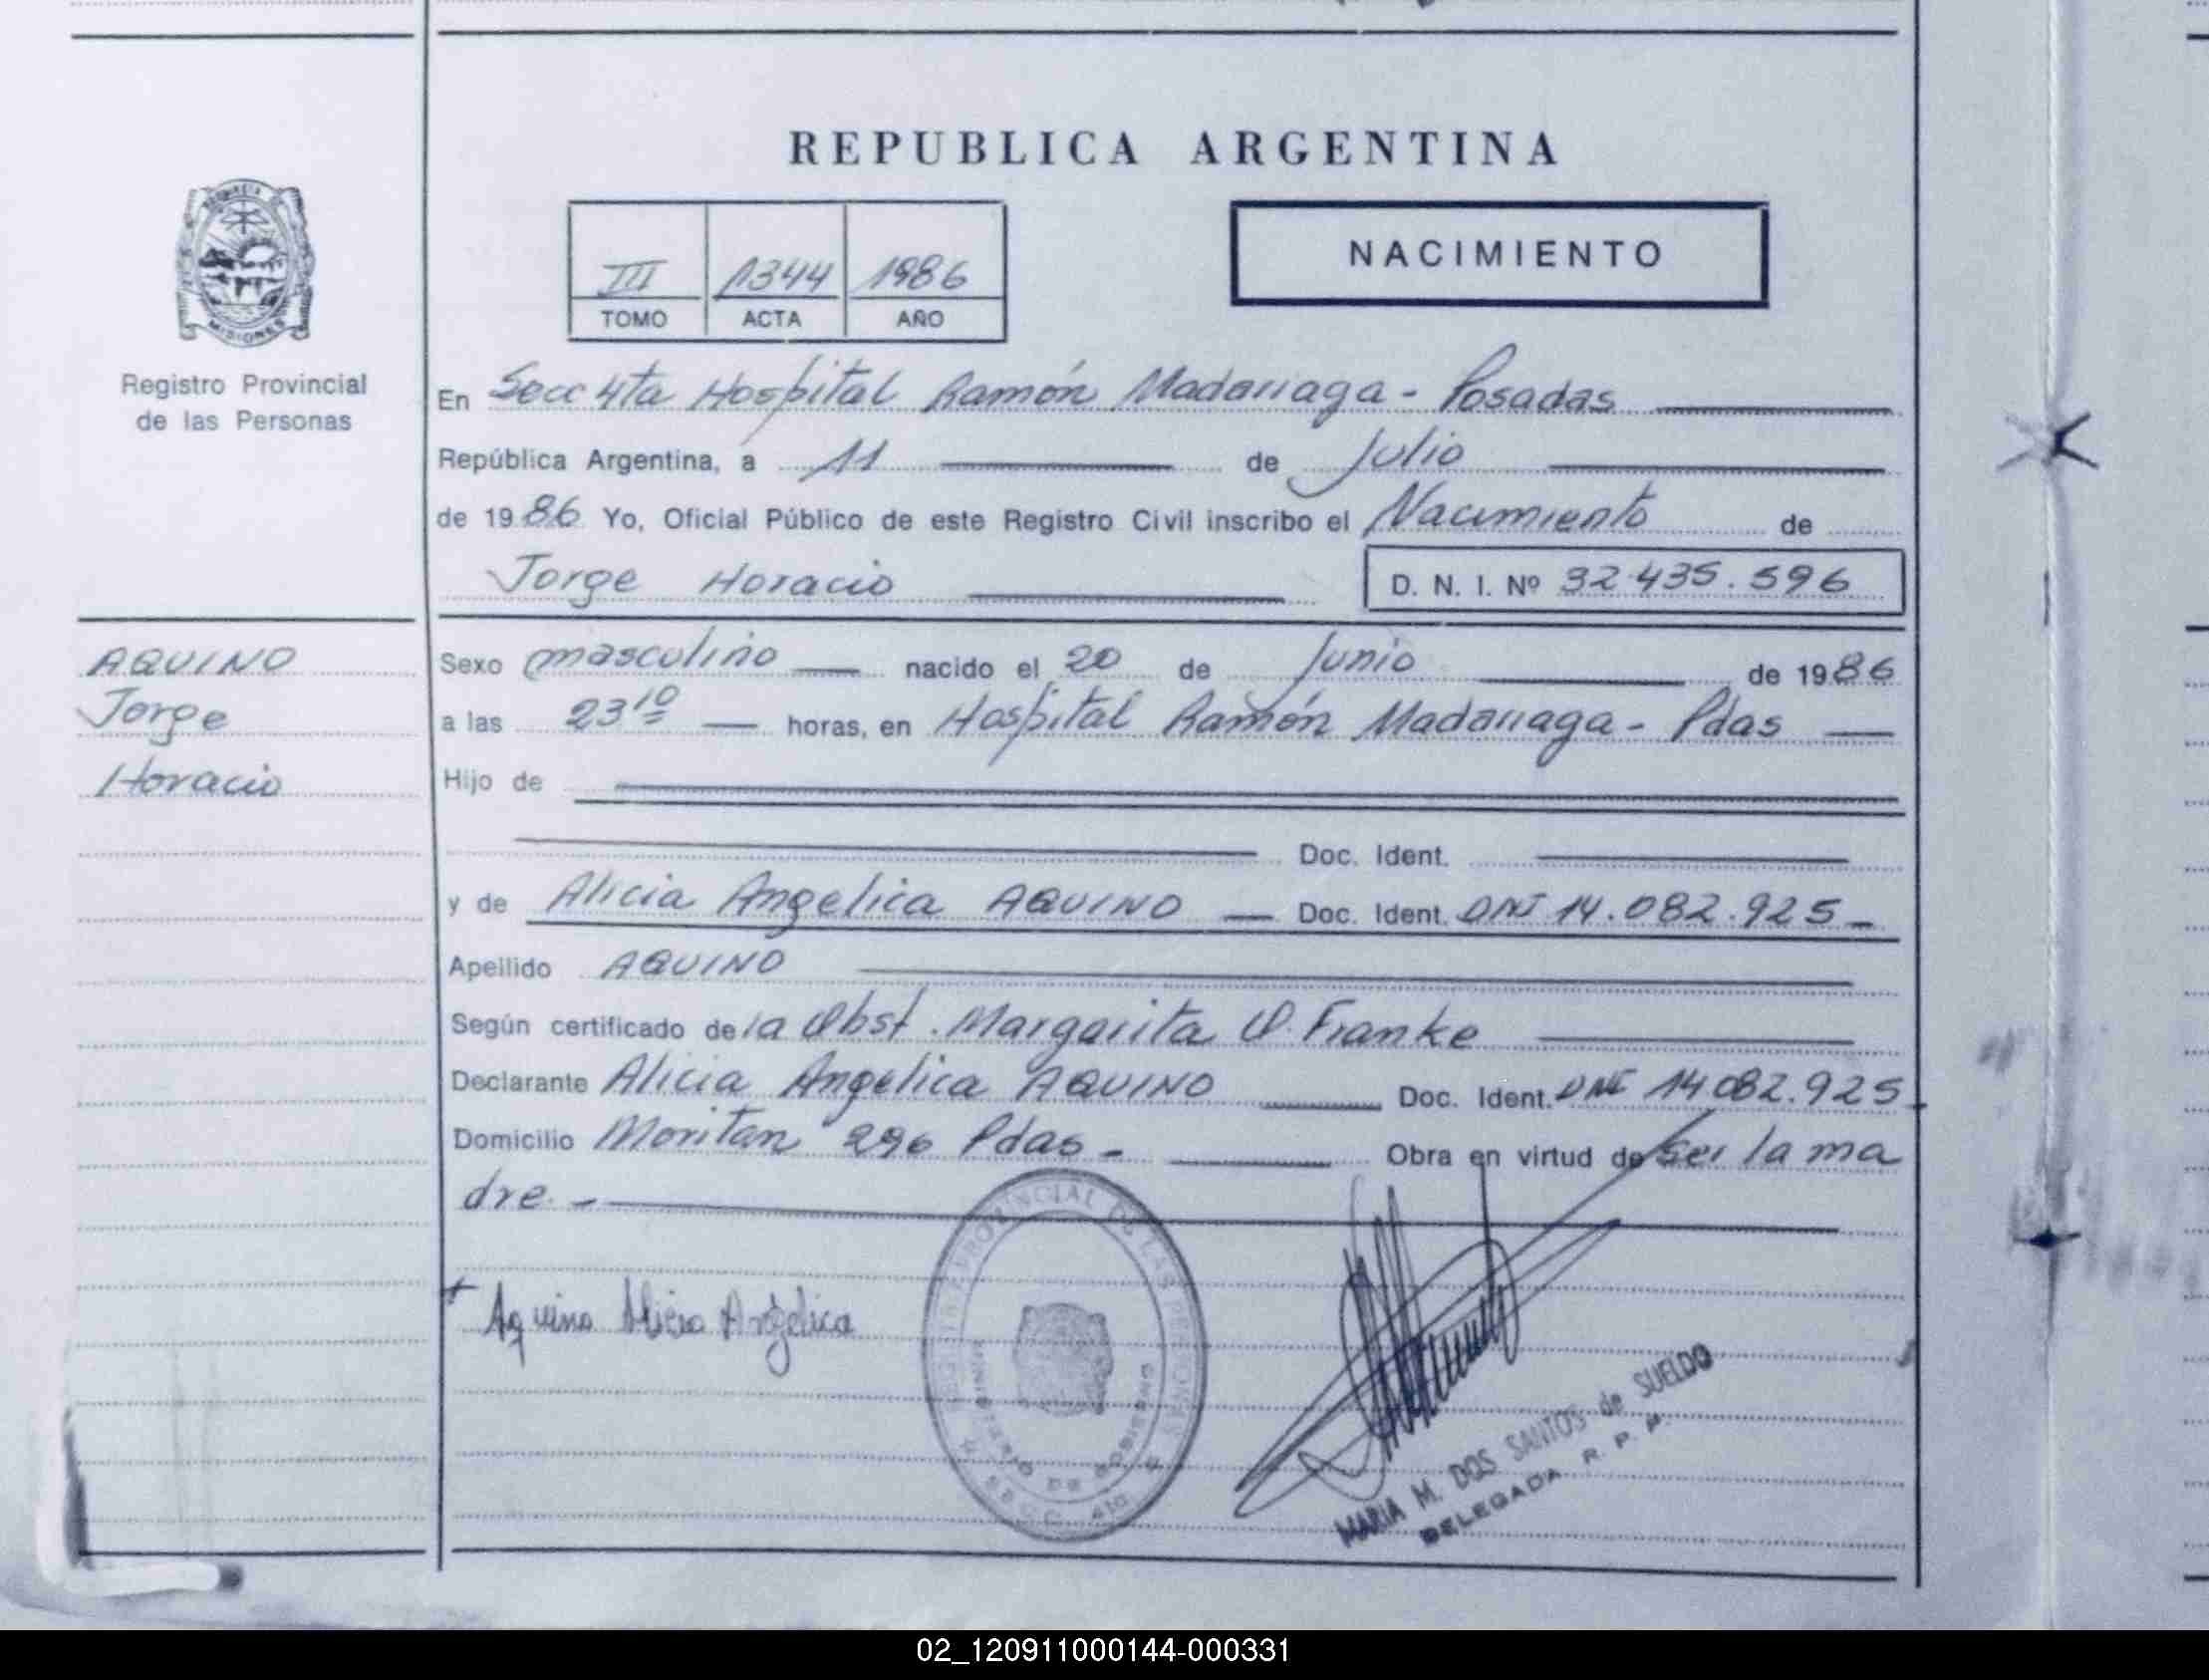 REPUBLICA ARGENTINA
III 1344 1986
TOMO ACTA AÑO
NACIMIENTO
MISIONES
Registro Provincial
de las Personas
En Secc 4ta Hospital Ramón Madariaga - Posadas
República Argentina, a 11 de Julio
de 1986 Yo, Oficial Público de este Registro Civil inscribo el Nacimiento de
Jorge Horacio D. N. I. Nº 32.435.596
AQUINO
Jorge
Horacio
Sexo masculino nacido el 20 de Junio de 1986
a las 23 10 horas, en Hospital Ramón Madariaga - Pdas
Hijo de
Doc. Ident.
y de Alicia Angelica AQUINO Doc. Ident. DNI 14.082.925
Apellido AQUINO
Según certificado de la Obst. Margarita O. Franke
Declarante Alicia Angelica AQUINO Doc. Ident. DNI 14082.925
Domicilio Moritan 296 Pdas - Obra en virtud de ser la ma
dre. -
Aquino Alicia Angelica
REGISTRO PROVINCIAL DE LAS PERSONAS
MINISTERIO DE GOBIERNO
SECC. 4ta
MARIA M. DOS SANTOS de SUELDO
DELEGADA R. P. P.
02_120911000144-000331